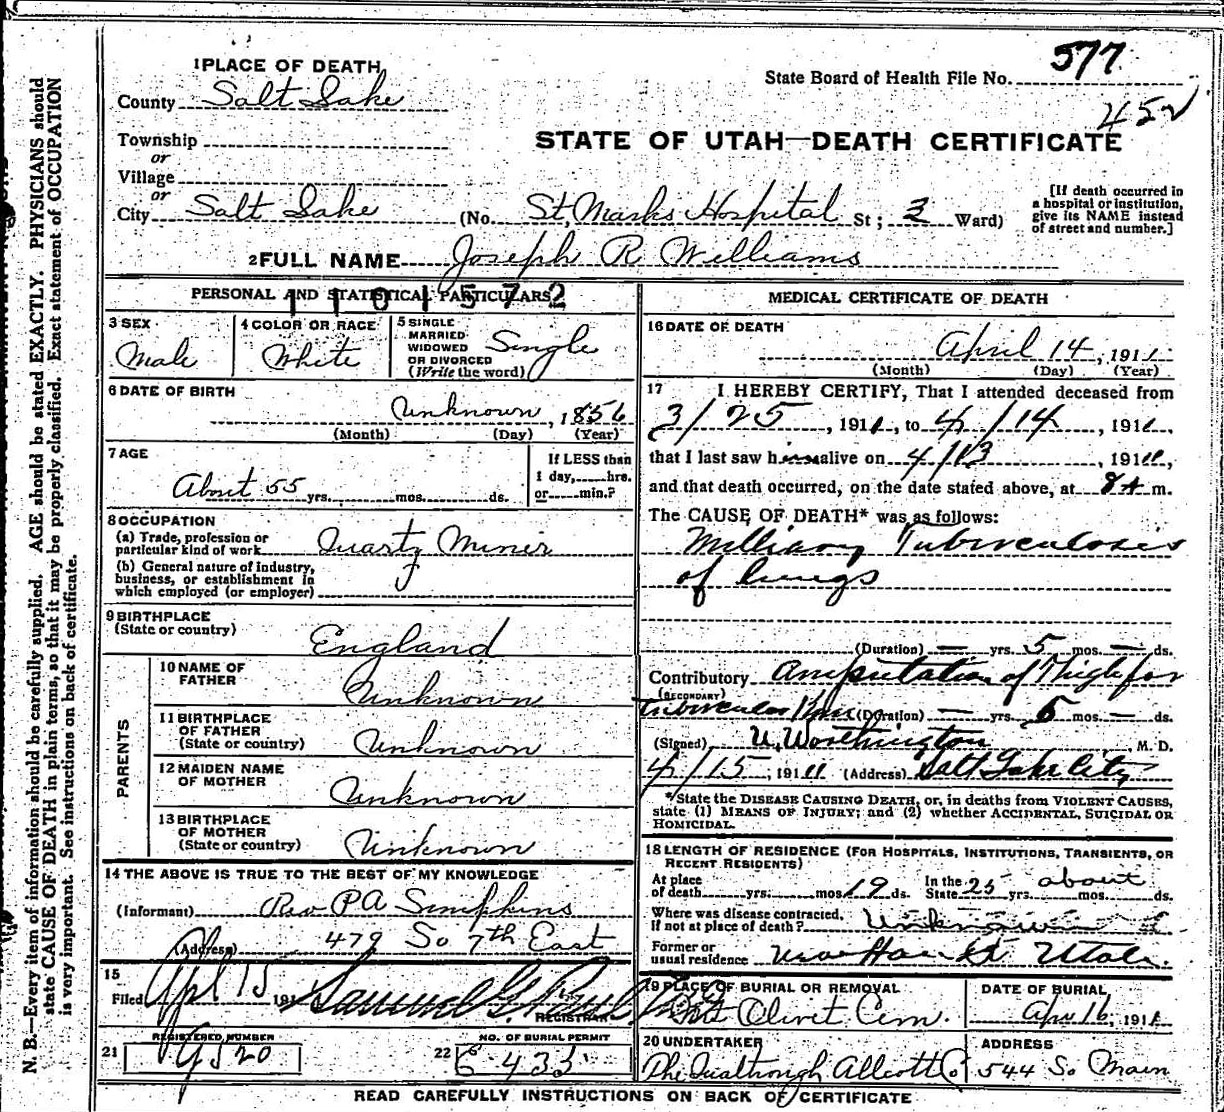 577
State Board of Health File No.
452
1 PLACE OF DEATH
County Salt Lake
STATE OF UTAH—DEATH CERTIFICATE
Township
or
Village
or
City Salt Lake (No. St, Marks Hospital St; 3 Ward)
[If death occurred in
a hospital or institution,
give its NAME instead
of street and number.]
2 FULL NAME Joseph R Williams
PERSONAL AND STATISTICAL PARTICULARS
1101572
3 SEX
Male
4 COLOR OR RACE
White
5 SINGLE
MARRIED
WIDOWED
OR DIVORCED
(Write the word)
Single
6 DATE OF BIRTH
Unknown, 1856
(Month) (Day) (Year)
7 AGE
About 55 yrs. mos. ds.
If LESS than
1 day, hrs.
or min.?
8 OCCUPATION
(a) Trade, profession or
particular kind of work Quartz Miner
(b) General nature of industry,
business, or establishment in
which employed (or employer)
9 BIRTHPLACE
(State or country)
England
PARENTS
10 NAME OF
FATHER
Unknown
11 BIRTHPLACE
OF FATHER
(State or country) Unknown
12 MAIDEN NAME
OF MOTHER
Unknown
13 BIRTHPLACE
OF MOTHER
(State or country) Unknown
14 THE ABOVE IS TRUE TO THE BEST OF MY KNOWLEDGE
(Informant) Rev PA Simpkins
(Address) 479 So 7th East
15
Filed Apl 15 191
REGISTRAR
REGISTERED NUMBER
21
NO. OF BURIAL PERMIT
22 6433
MEDICAL CERTIFICATE OF DEATH
16 DATE OF DEATH
April 14, 1911
(Month) (Day) (Year)
17 I HEREBY CERTIFY, That I attended deceased from
3/25, 1911, to 4/14, 1911,
that I last saw him alive on 4/13, 1911,
and that death occurred, on the date stated above, at 8 A m.
The CAUSE OF DEATH* was as follows:
Milliary Tuberculosis
of lungs
(Duration) — yrs. 5 mos. — ds.
Contributory Amputation of Thigh for
(SECONDARY)
Tubercular Knee (Duration) — yrs. 5 mos. — ds.
(Signed) U. Worthington, M. D.
4/15, 1911 (Address) Salt Lake City
*State the DISEASE CAUSING DEATH, or, in deaths from VIOLENT CAUSES,
state (1) MEANS OF INJURY; and (2) whether ACCIDENTAL, SUICIDAL OR
HOMICIDAL.
18 LENGTH OF RESIDENCE (FOR HOSPITALS, INSTITUTIONS, TRANSIENTS, OR
RECENT RESIDENTS)
At place
of death yrs. mos. 19 ds.
In the
State 25 yrs. about mos. ds.
Where was disease contracted,
if not at place of death? Unknown
Former or
usual residence Utah.
19 PLACE OF BURIAL OR REMOVAL
Mt Olivet Cem.
DATE OF BURIAL
Apr 16, 1911
20 UNDERTAKER
ADDRESS
544 So Main
READ CAREFULLY INSTRUCTIONS ON BACK OF CERTIFICATE
N. B.—Every item of information should be carefully supplied. AGE should be stated EXACTLY. PHYSICIANS should
state CAUSE OF DEATH in plain terms, so that it may be properly classified. Exact statement of OCCUPATION
is very important. See instructions on back of certificate.